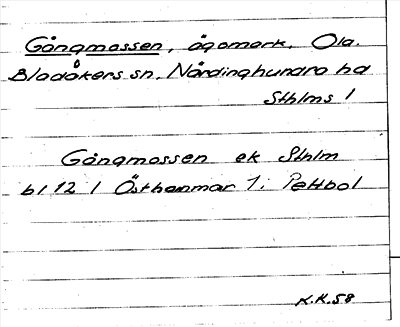 Gångmossen, ägomark, Ola.
Bladåkers sn. Närdinghundra hd
Sthlms l
Gångmossen ek Sthlm
bl 12 l Östhammar 1: Pettbol
K.K.58